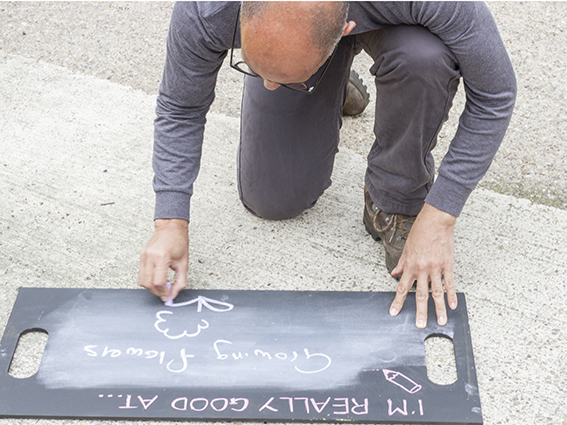 I'M REALLY GOOD AT...
Growing Flowers